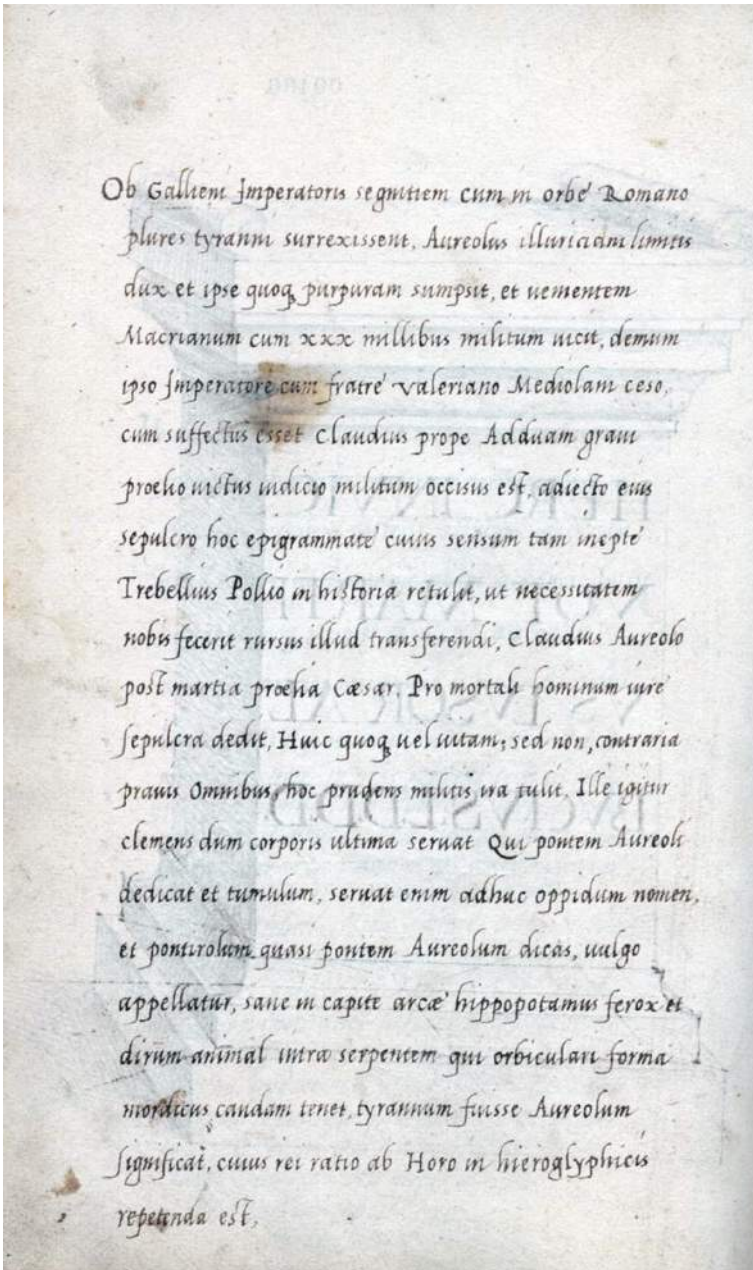 Ob Gallieni Imperatoris segnitiem cum in orbe Romano
plures tyranni surrexissent, Aureolus illuriciani limitis
dux et ipse quoqꝫ purpuram sumpsit, et uementem
Macrianum cum xxx millibus militum uicit, demum
ipso Imperatore cum fratre Valeriano Mediolani ceso,
cum suffectus esset Claudius prope Adduam graui
proelio uictus iudicio militum occisus est, adiecto eius
sepulcro hoc epigrammate cuius sensum tam inepte
Trebellius Pollio in historia retulit, ut necessitatem
nobis fecerit rursus illud transferendi, Claudius Aureolo
post martia proelia Cæsar, Pro mortali hominum iure
sepulcra dedit, Huic quoqꝫ uel uitam; sed non, contraria
prauis Omnibus, hoc prudens militis ira tulit, Ille igitur
clemens dum corporis ultima seruat Qui pontem Aureoli
dedicat et tumulum, seruat enim adhuc oppidum nomen,
et pontirolum quasi pontem Aureolum dicas, uulgo
appellatur, sane in capite arcæ hippopotamus ferox et
dirum animal intra serpentem qui orbiculari forma
mordicus caudam tenet, tyrannum fuisse Aureolum
significat, cuius rei ratio ab Horo in hieroglyphicis
repetenda est,